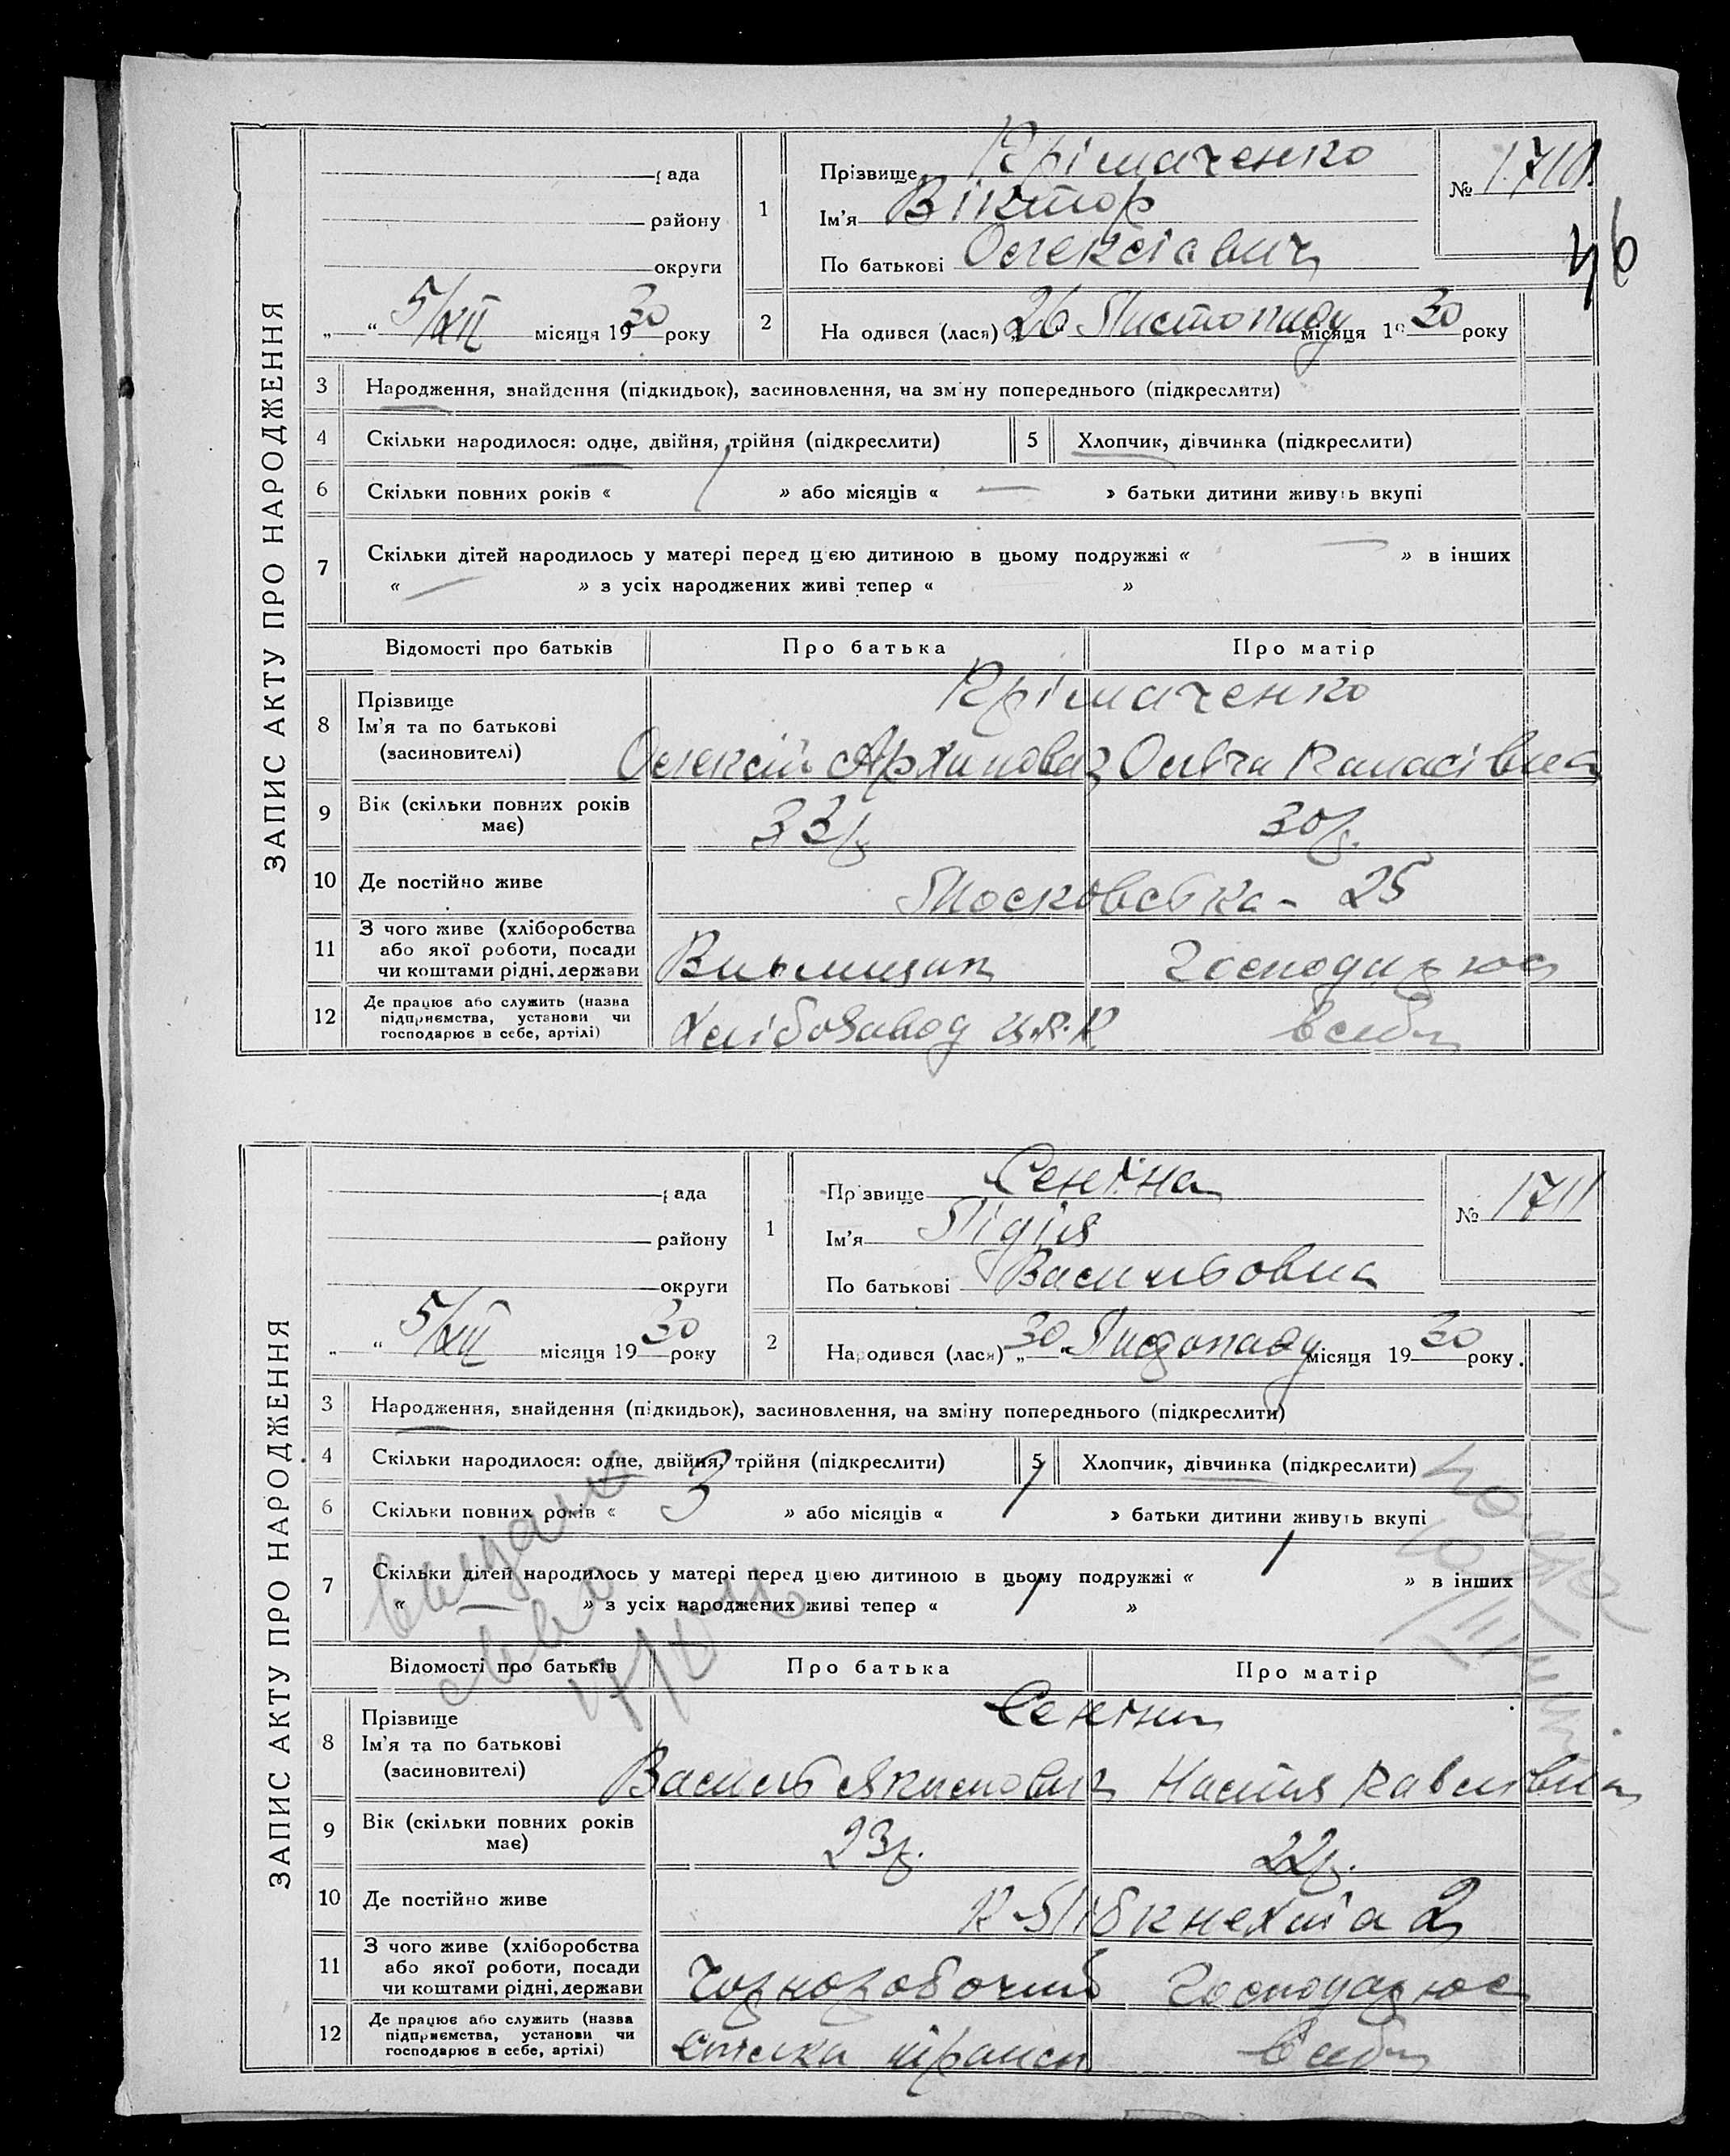 ЗАПИС АКТУ ПРО НАРОДЖЕННЯ
рада
району
округи
„ “ 5/XII місяця 1930 року
1
Прізвище Крімаченко
Ім'я Віктор
По батькові Олексієвич
№ 1710
46
2
Народився (лася) „26 Листопаду місяця 1930 року
3 Народження, знайдення (підкидьок), засиновлення, на зміну попереднього (підкреслити)
4 Скільки народилося: одне, двійня, трійня (підкреслити)
5 Хлопчик, дівчинка (підкреслити)
6 Скільки повних років « 1 » або місяців « — » батьки дитини живуть вкупі
7 Скільки дітей народилось у матері перед цією дитиною в цьому подружжі « — » в інших
« — » з усіх народжених живі тепер « »
Відомості про батьків Про батька Про матір
8 Прізвище
Ім'я та по батькові
(засиновителі)
Крімаченко
Олексій Архипович Ольга Панасівна
9 Вік (скільки повних років
має)
33р. 30р.
10 Де постійно живе Московська - 25
11 З чого живе (хліборобства
або якої роботи, посади
чи коштами рідні, держави
Господарює
12 Де працює або служить (назва
підприємства, установи чи
господарює в себе, артілі)
Хлібозавод Ц.Р.К в себе
ЗАПИС АКТУ ПРО НАРОДЖЕННЯ
рада
району
округи
„ “ 5/XII місяця 1930 року
1
Прізвище Сеніна
Ім'я Лідія
По батькові Васильовна
№ 1711
2
Народився (лася) „30 Листопаду місяця 1930 року.
3 Народження, знайдення (підкидьок), засиновлення, на зміну попереднього (підкреслити)
4 Скільки народилося: одне, двійня, трійня (підкреслити)
5 Хлопчик, дівчинка (підкреслити)
6 Скільки повних років « 3 » або місяців « » батьки дитини живуть вкупі
7 Скільки дітей народилось у матері перед цією дитиною в цьому подружжі « 1 » в інших
« — » з усіх народжених живі тепер « 1 »
Відомості про батьків Про батька Про матір
8 Прізвище
Ім'я та по батькові
(засиновителі)
Сеніни
Василь Якимович Настя Павлівна
9 Вік (скільки повних років
має)
23р. 22р.
10 Де постійно живе К Лібкнехта 2
11 З чого живе (хліборобства
або якої роботи, посади
чи коштами рідні, держави
Чорноробочий Господарює
12 Де працює або служить (назва
підприємства, установи чи
господарює в себе, артілі)
Спілка трансп в себе